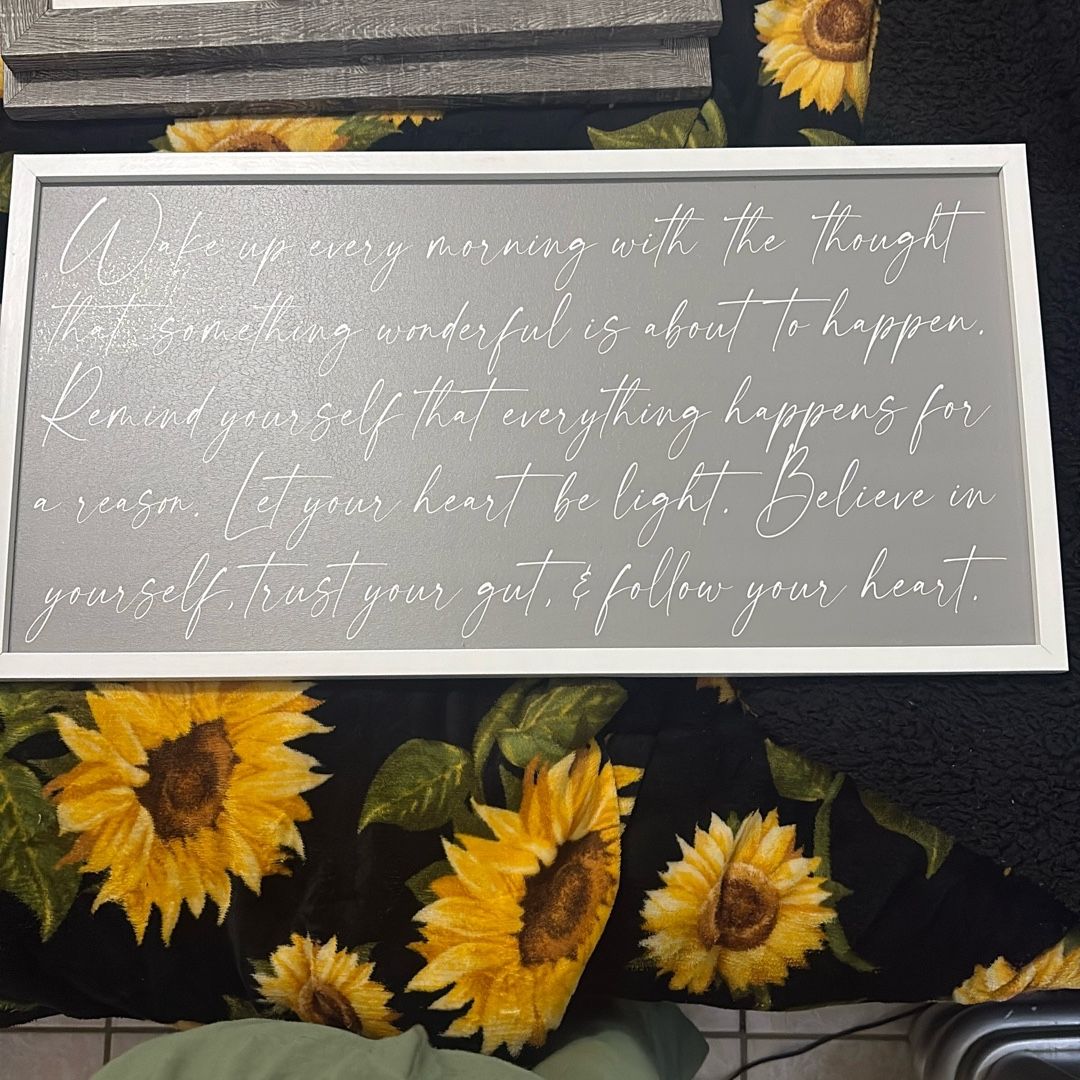 Wake up every morning with the thought
that something wonderful is about to happen.
Remind yourself that everything happens for
a reason. Let your heart be light. Believe in
yourself, trust your gut, & follow your heart.